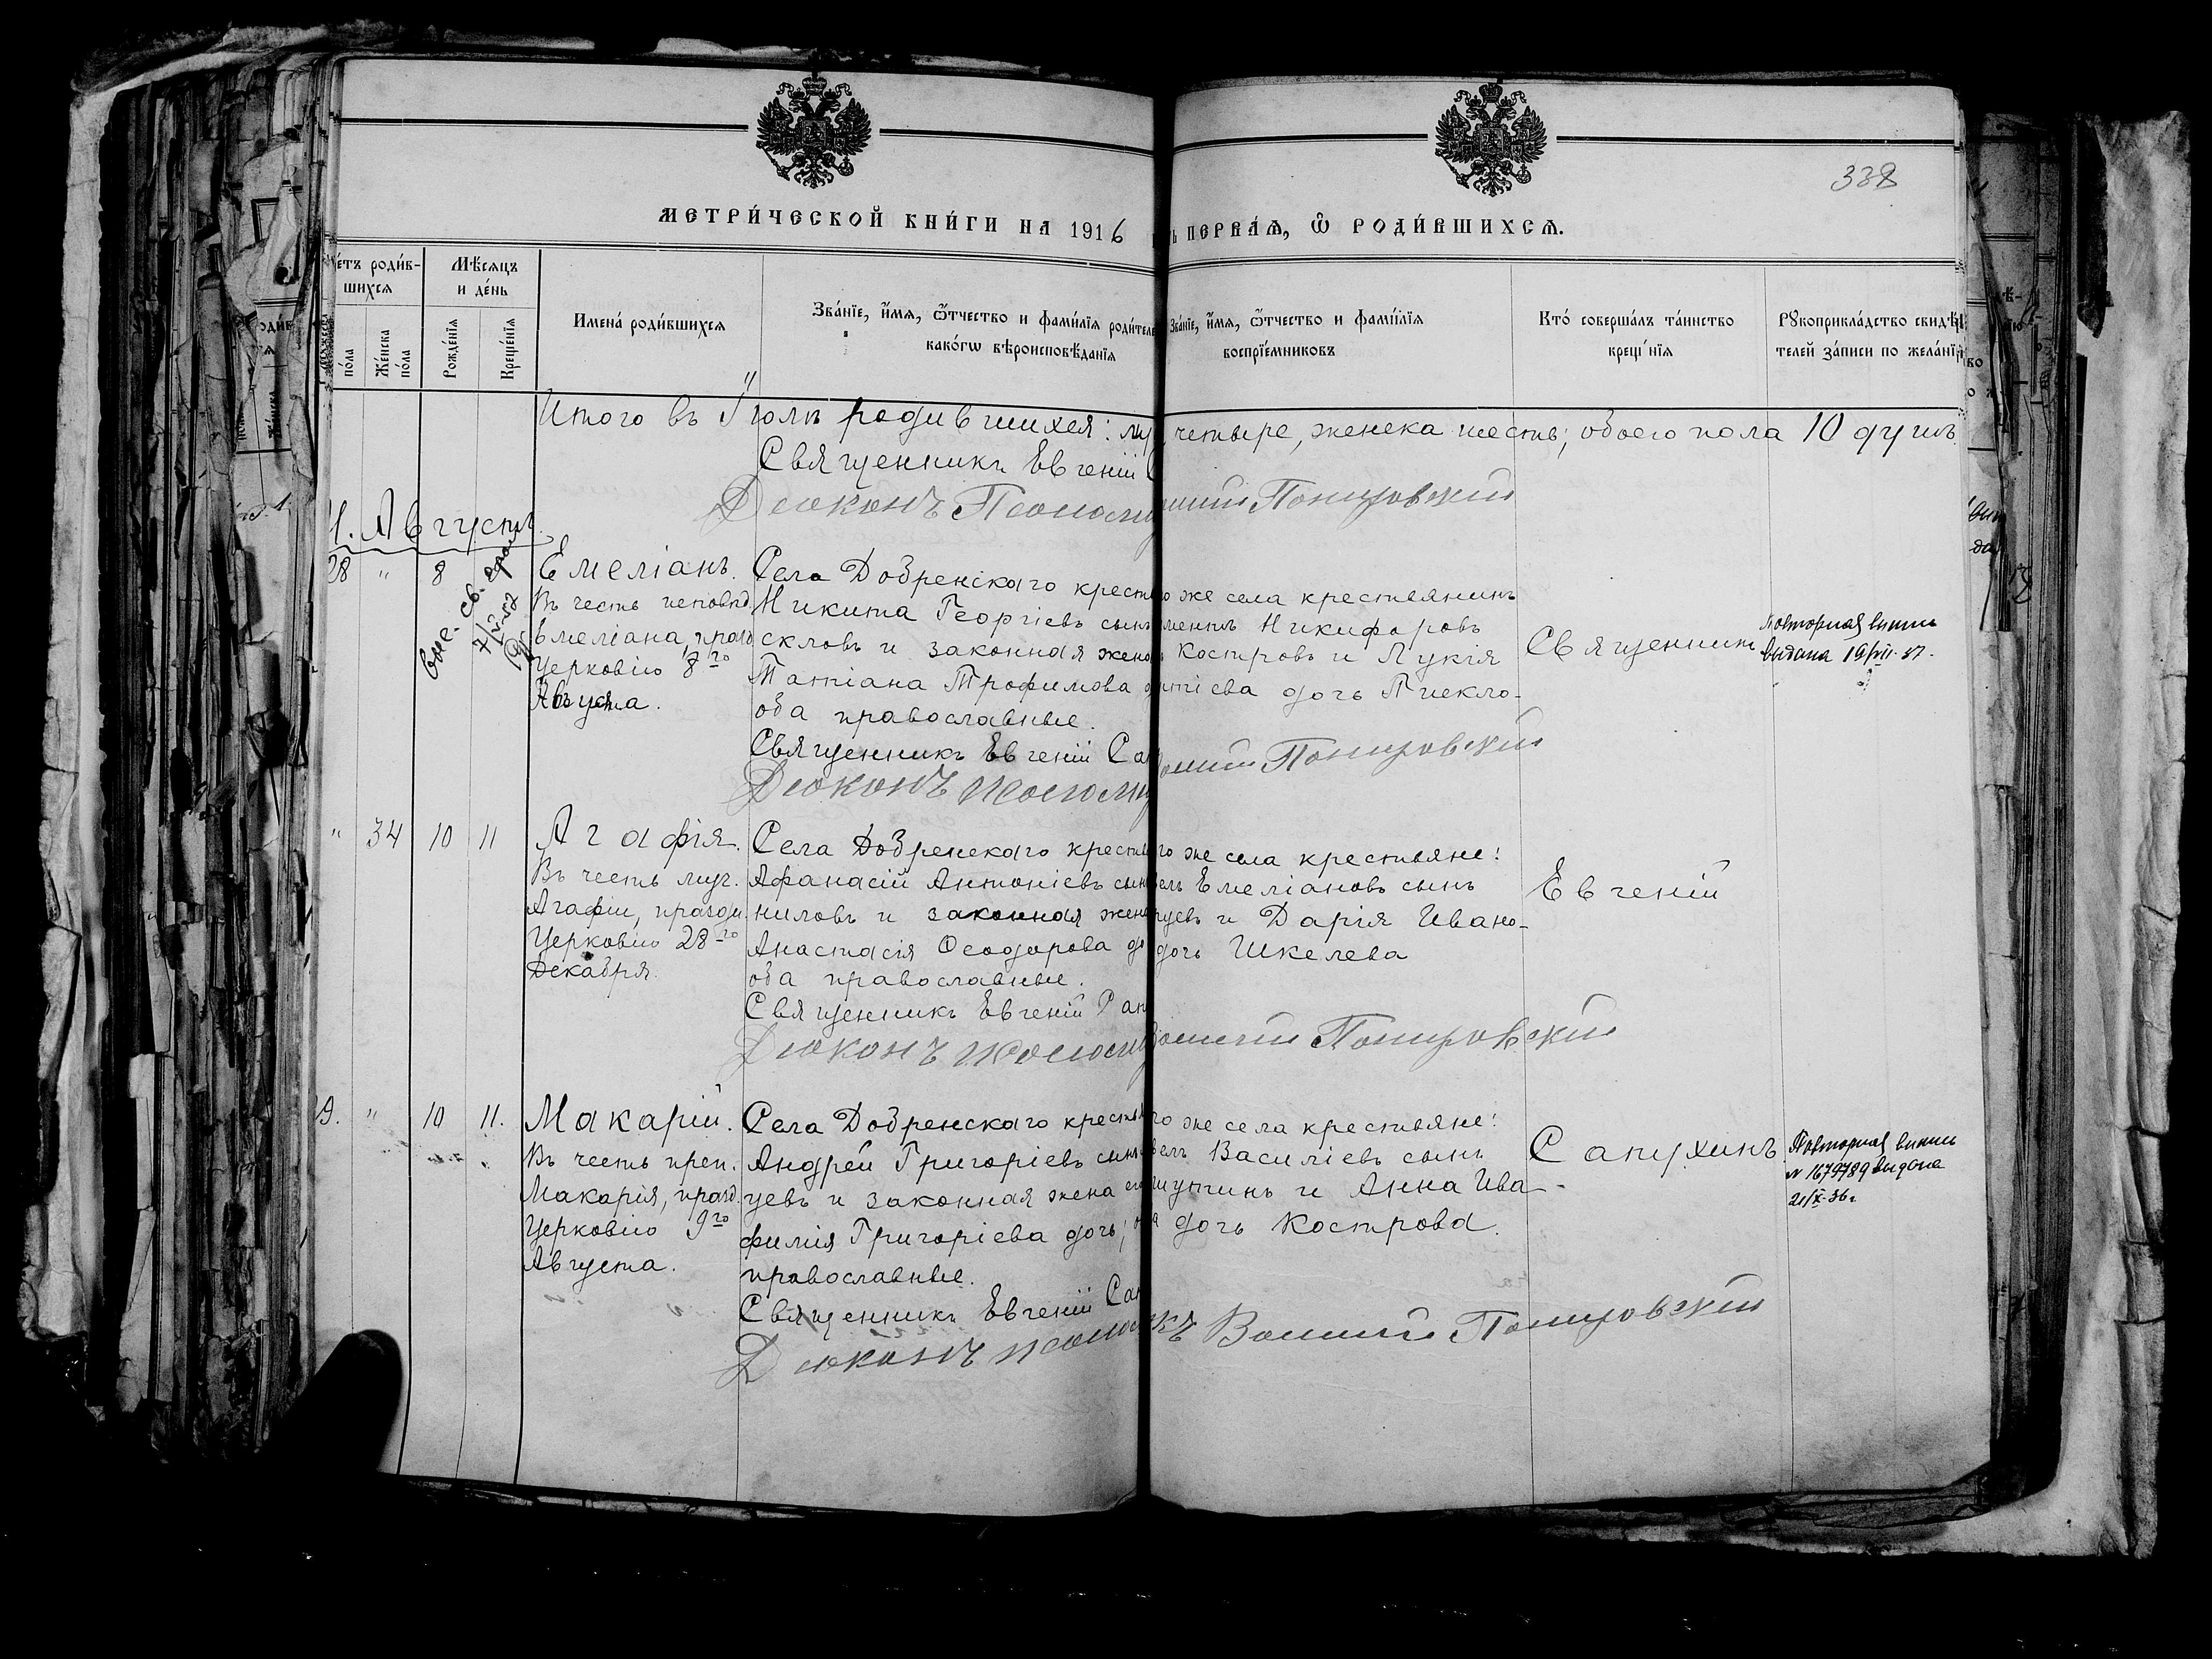 338
МЕТРИ́ЧЕСКОЙ КНИ́ГИ НА 1916
ПЕРВАѦ, Ѿ РОДИ́ВШИХСѦ.
роди́в-
шихсѧ
Мѣсѧцъ
и де́нь
по́ла
Же́нска
по́ла
Рожде́нїѧ
Креще́нїѧ
Имена́ роди́вшихсѧ
Зва́нїе, и́мѧ, ѻ́тчество и фами́лїѧ родителе
како́гѡ вѣроисповѣ́данїѧ
Зва́нїе, и́мѧ, ѻ́тчество и фами́лїѧ
воспрїе́мниковъ
Кто́ соверша́лъ та́инство
Рꙋкоприкла́дство свидѣ
телей за́писи по жела́нї
Итого въ Іюлѣ родившихся: му
четыре, женска шесть; обоего пола 10 душъ.
Священникъ Евгеній
Діаконъ
Августъ.
28 " 8
Емеліанъ.
Въ честь исповѣд.
Емеліана, празд.
Церковію 8го
Августа.
Села Добренскаго крестья
Никита Георгіевъ сынъ
скловъ и законная жена
Татіана Трофимова
оба православные.
Священникъ Евгеній Сап
Діаконъ
же села крестьянинъ
Никифоровъ
Костровъ и Лукія
дочь Пискло-
Священникъ
Повторная выпись
выдана 19/VII-37.
" 34 10 11
Агафія.
Въ честь муч.
Агафіи, праздн.
Церковію 28го
Декабря.
Села Добренскаго крестья
Афанасій Антоніевъ сынъ
ниловъ и законная жена
Анастасія Ѳеодорова до
оба православные.
Священникъ Евгеній Сап
Діаконъ
го же села крестьяне:
Емеліановъ сынъ
и Дарія Ивано-
дочь Шкелева
Евгеній
" 10 11.
Макарій.
Въ честь преп.
Макарія, празд.
Церковію 9го
Августа.
Села Добренскаго крестья
Андрей Григоріевъ сынъ
цевъ и законная жена
фимія Григоріева дочь;
православные.
Священникъ Евгеній Сап
Діаконъ
го же села крестьяне:
Василіевъ сынъ
и Анна Ива-
дочь Кострова.
Сапухинъ
Повторная выпись
№ 1679789 выдана
21/X-36г